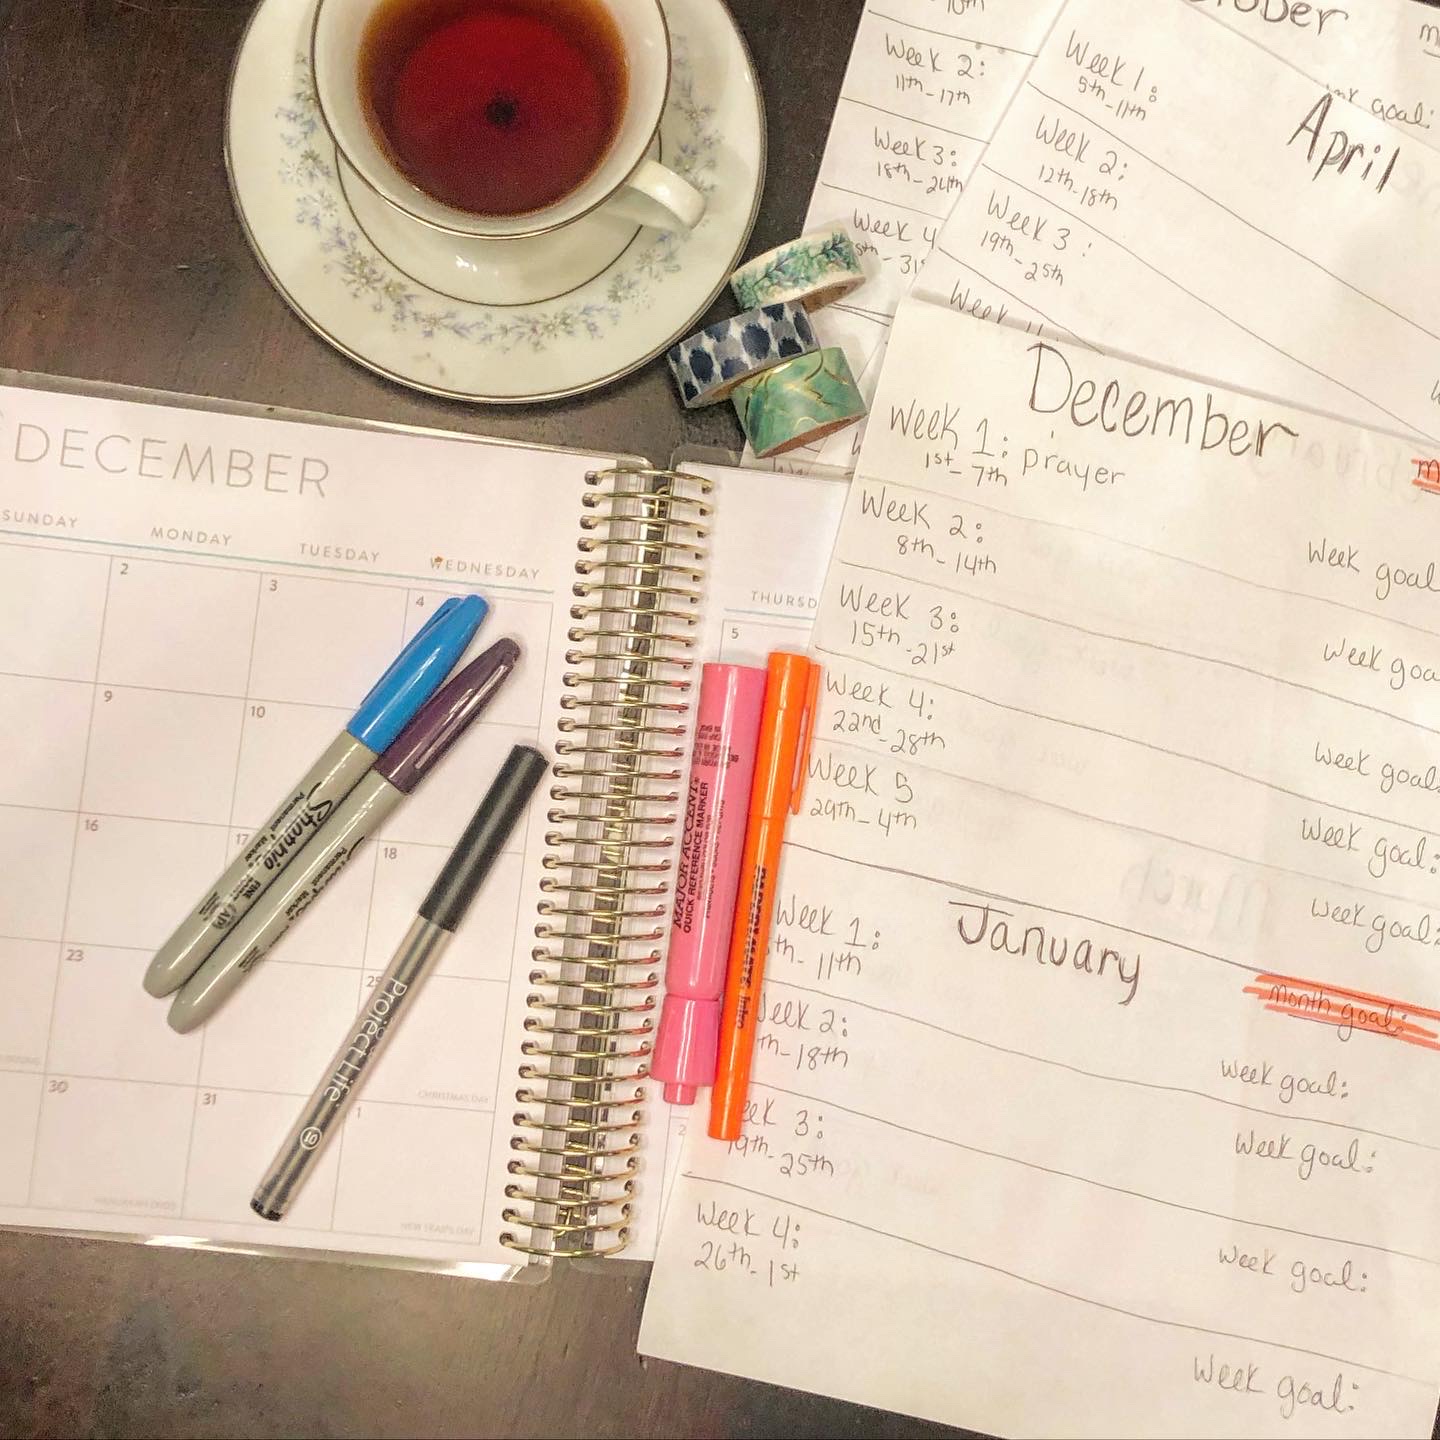 DECEMBER
SUNDAY MONDAY TUESDAY WEDNESDAY
THURSD
2 3 4 5
9 10
16 17 18
23
30 31 1
CHRISTMAS DAY
NEW YEAR'S DAY
2
Sharpie
Permanent Marker
FINE
Permanent Marker
Project Life
01
MAJOR ACCENT®
QUICK REFERENCE MARKER
Week 2:
11th-17th
Week 3:
18th-24th
Week 4
31
Week 1:
5th-11th
Week 2:
12th-18th
Week 3:
19th-25th
Week
goal:
April
December
Week 1: prayer
1st-7th
Week 2:
8th-14th
Week goal:
Week 3:
15th-21st
Week goa
Week 4:
22nd-28th
Week goal:
Week 5
29th-4th
Week goal:
Week goal:
January
month goal:
Week 1:
11th
Week goal:
Week 2:
18th
Week goal:
eek 3:
19th-25th
Week goal:
Week 4:
26th-1st
Week goal: